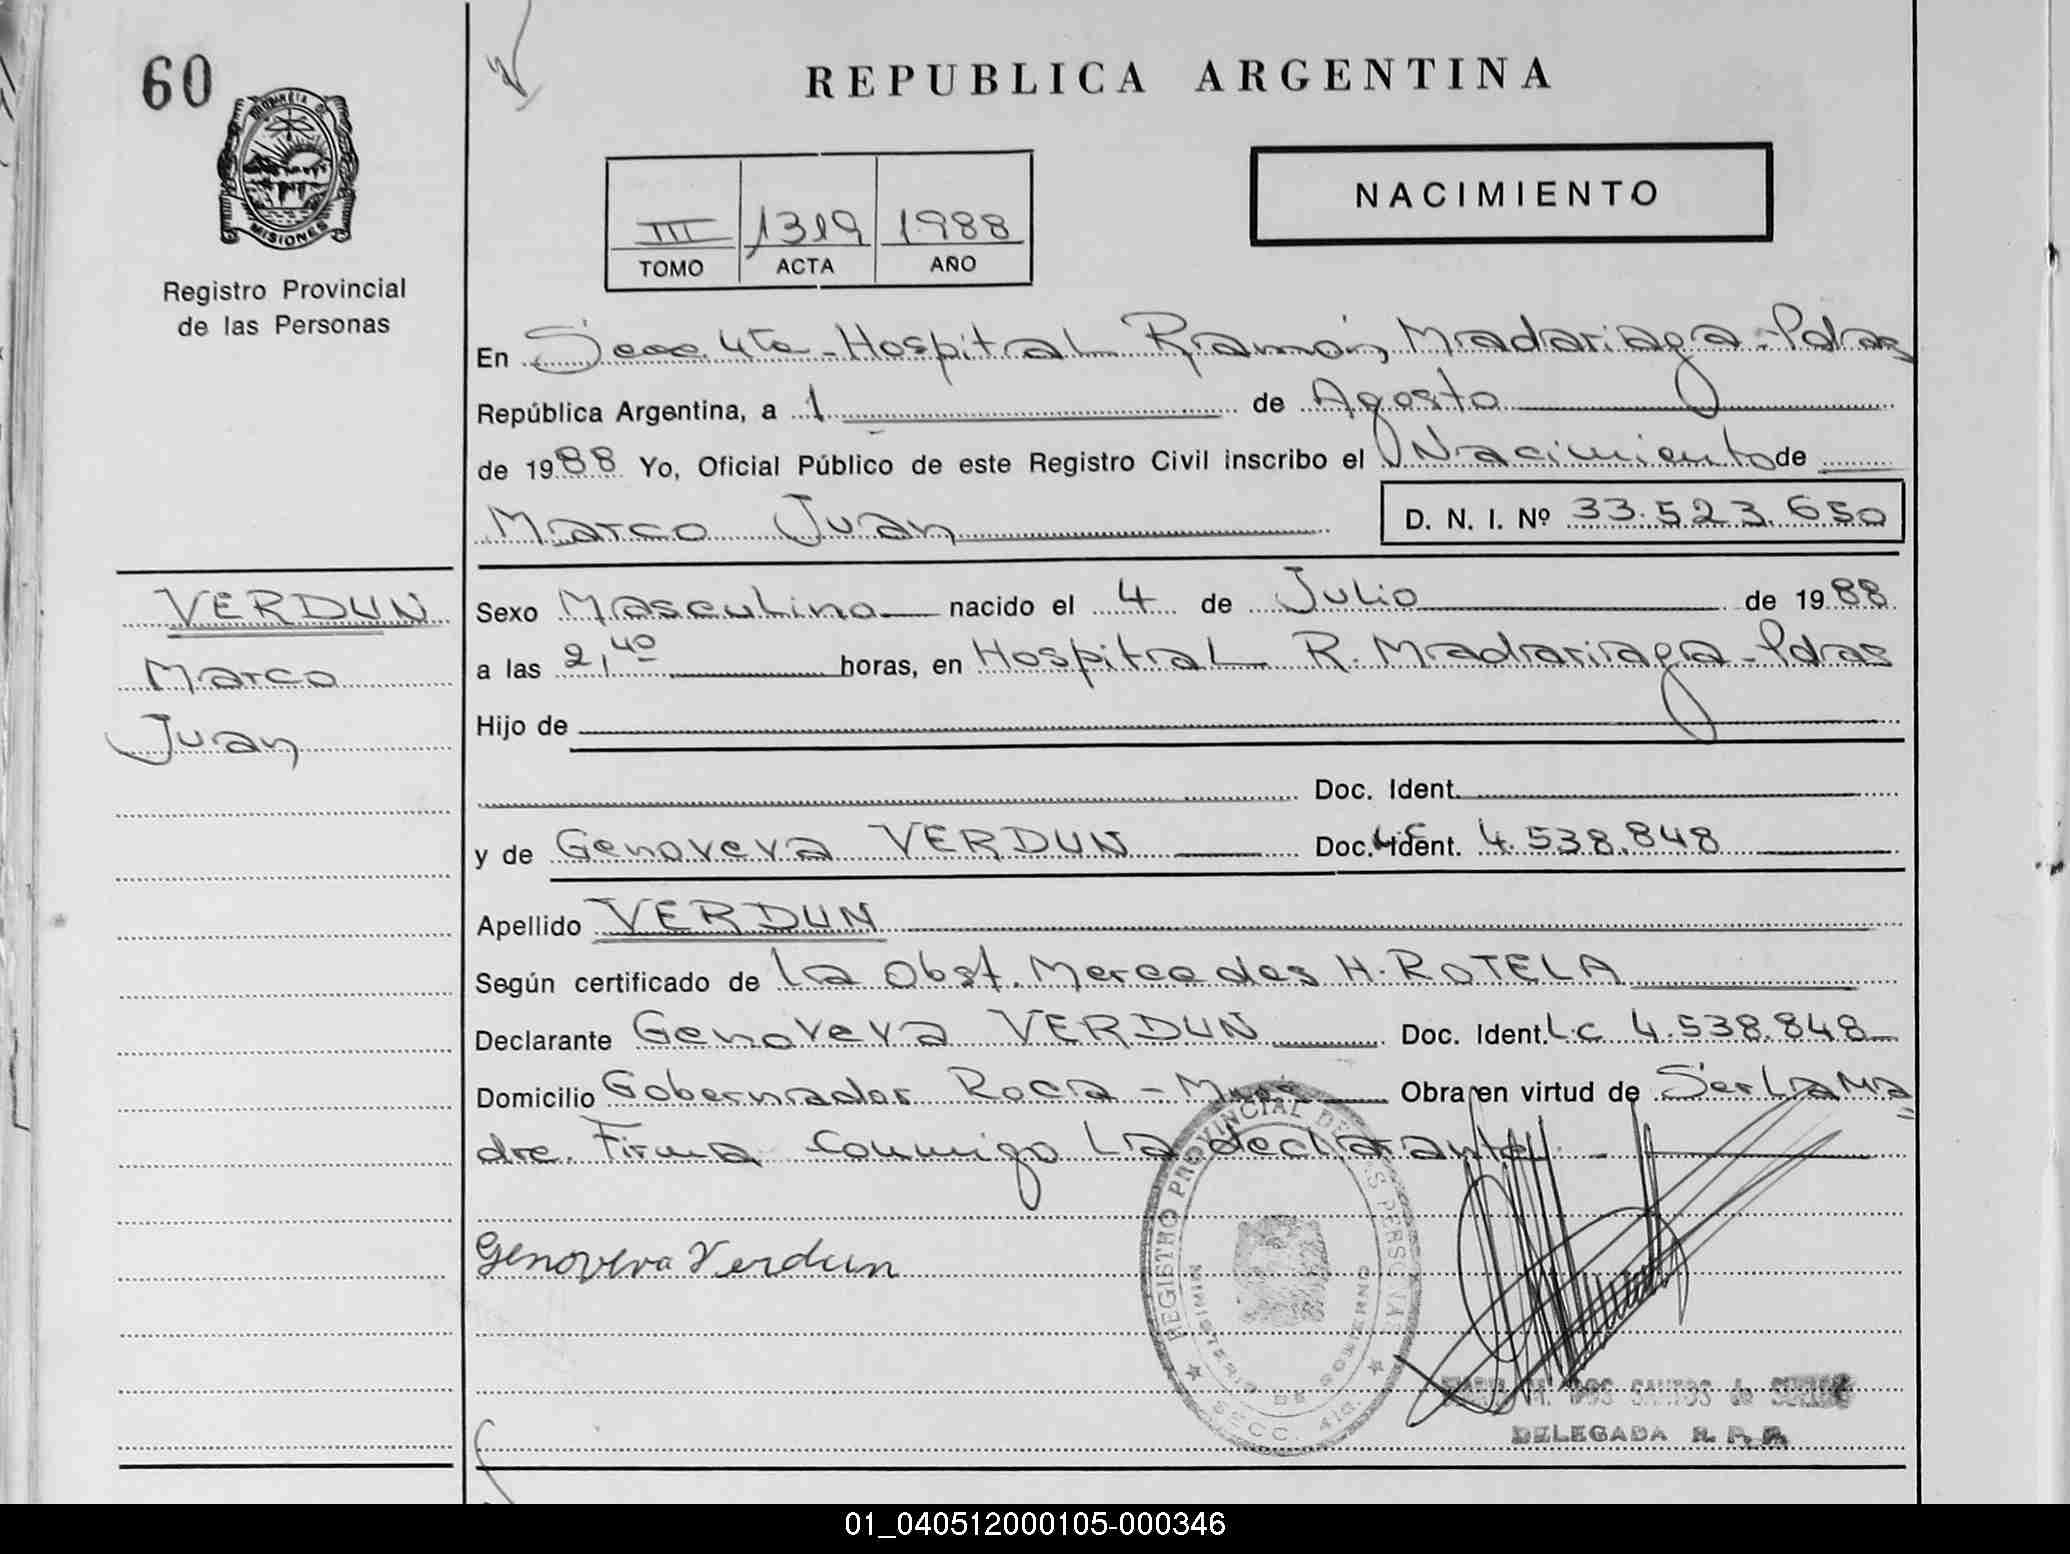 60
REPUBLICA ARGENTINA
PROVINCIA DE
MISIONES
Registro Provincial
de las Personas
III 1319 1988
TOMO ACTA AÑO
NACIMIENTO
En Secc. 4ta - Hospital Ramón Madariaga - Pdas
República Argentina, a 1 de Agosto
de 1988 Yo, Oficial Público de este Registro Civil inscribo el Nacimiento de
Marco Juan D. N. I. Nº 33.523.650
VERDUN
Marco
Juan
Sexo Masculino nacido el 4 de Julio de 1988
a las 2,40 horas, en Hospital R. Madariaga - Pdas
Hijo de
Doc. Ident.
y de Genoveva VERDUN Doc. Ident. L.C 4.538.848
Apellido VERDUN
Según certificado de la Obst. Mercedes H. ROTELA
Declarante Genoveva VERDUN Doc. Ident. L.C 4.538.848
Domicilio Gobernador Roca - Mnes Obra en virtud de Ser La Ma
dre. Firma conmigo La declarante. -
Genoveva Verdun
REGISTRO PROVINCIAL DE LAS PERSONAS
MINISTERIO DE GOBIERNO
SECC. 4ta.
M. DOS SANTOS de
DELEGADA R. P. P.
01_040512000105-000346